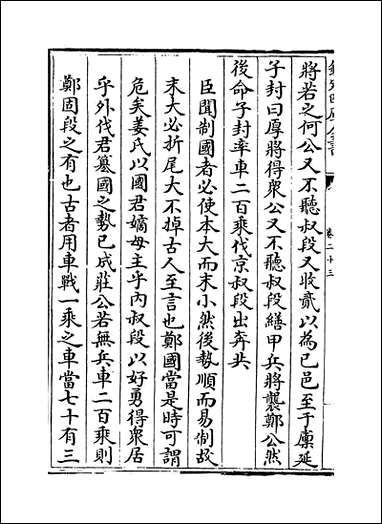 欽定四庫全書
卷二十三
將若之何公又不聽叔段又收貳以為己邑至于廩延
子封曰厚將得衆公又不聽叔段繕甲兵將襲鄭公然
後命子封率車二百乘伐京叔段出奔共
臣聞制國者必使本大而末小然後勢順而易制故
末大必折尾大不掉古人至言也鄭國當是時可謂
危矣姜氏以國君嫡母主乎内叔段以好勇得衆居
乎外伐君簒國之勢已成莊公若無兵車二百乘則
鄭固段之有也古者用車戰一乘之車當七十有三